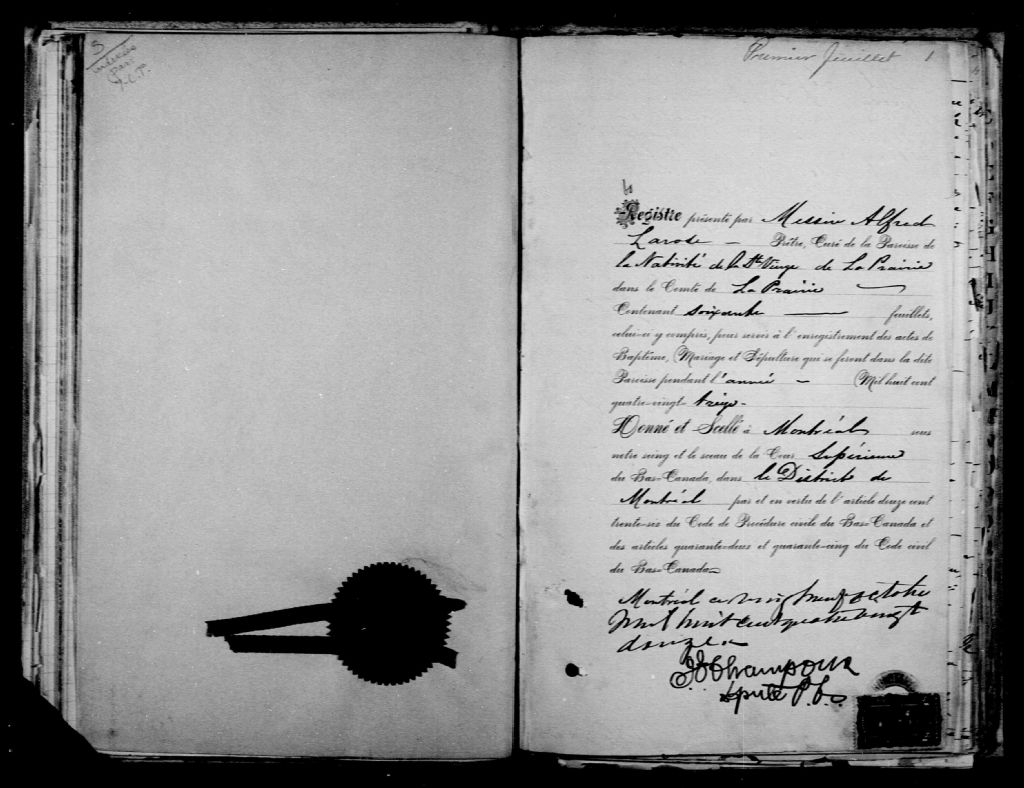 3
Premier feuillet 1
Registre présenté par Messire Alfred
Larose — Prêtre, Curé de la Paroisse de
la Nativité de la Ste Vierge de La Prairie
dans le Comté de La Prairie
Contenant soixante — feuillets,
celui-ci y compris, pour servir à l'enregistrement des actes de
Baptême, Mariage et Sépulture qui se feront dans la dite
Paroisse pendant l'année — Mil huit cent
quatre-vingt treize -
Donné et Scellé à Montréal sous
notre seing et le sceau de la Cour Supérieure
du Bas-Canada, dans le District de
Montréal par et en vertu de l'article douze cent
trente-six du Code de Procédure civile du Bas-Canada et
des articles quarante-deux et quarante-cinq du Code civil
du Bas-Canada
Montréal ce vingt neuf octobre
mil huit cent quatre vingt
douze
Champoux